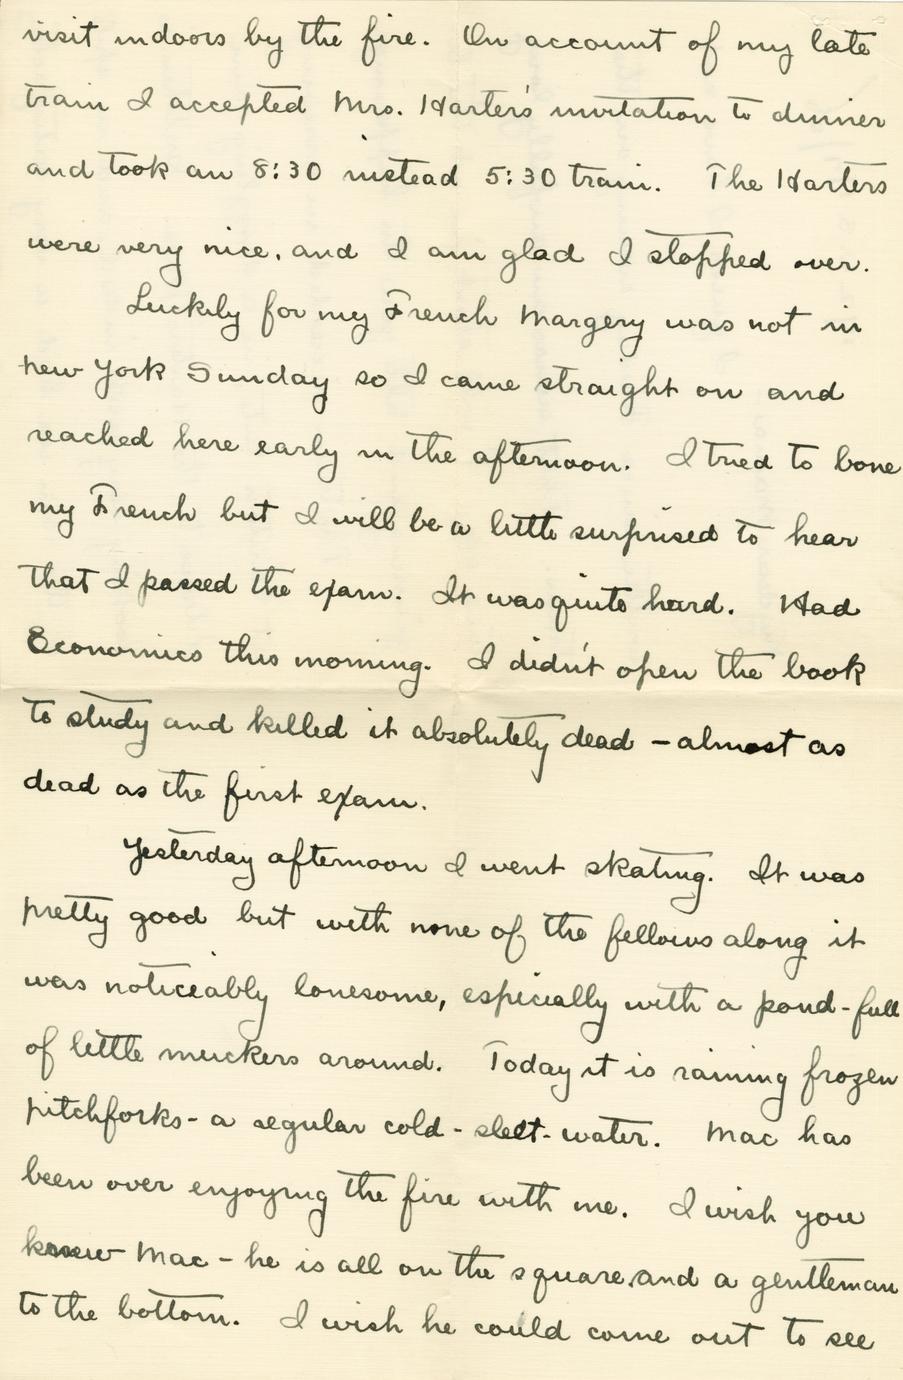 visit indoors by the fire. On account of my late
train I accepted Mrs. Harter's invitation to dinner
and took an 8:30 instead 5:30 train. The Harters
were very nice, and I am glad I stopped over.
Luckily for my French Margery was not in
New York Sunday so I came straight on and
reached here early in the afternoon. I tried to bone
my French but I will be a little surprised to hear
that I passed the exam. It was quite hard. Had
Economics this morning. I didn't open the book
to study and killed it absolutely dead - almost as
dead as the first exam.
Yesterday afternoon I went skating. It was
pretty good but with none of the fellows along it
was noticeably lonesome, especially with a pond-full
of little muckers around. Today it is raining frozen
pitchforks - a regular cold - sleet - water. Mac has
been over enjoying the fire with me. I wish you
knew Mac - he is all on the square, and a gentleman
to the bottom. I wish he could come out to see